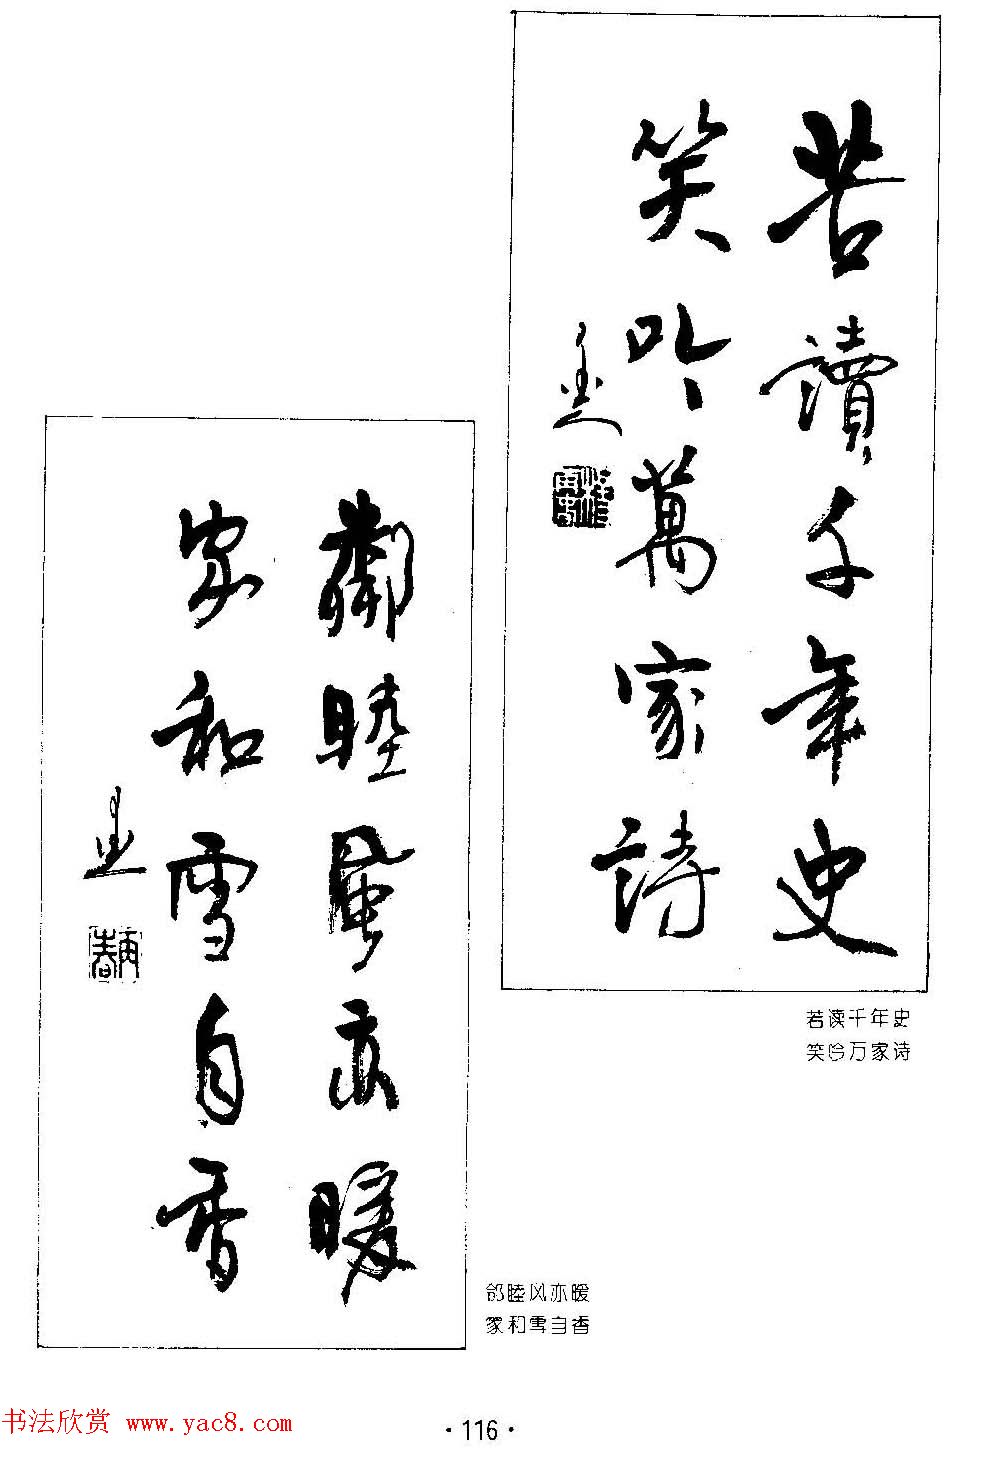 苦讀千年史
笑吟萬家詩
苦读千年史
笑吟万家诗
鄰睦風亦暖
家和雪自香
邻睦风亦暖
家和雪自香
书法欣赏 www.yac8.com
·116·